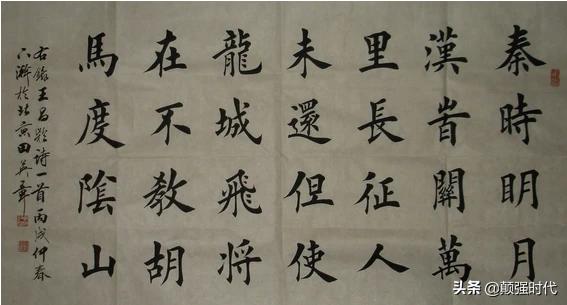 秦時明月
漢旹關萬
里長征人
未還但使
龍城飛将
在不教胡
馬度陰山
右錄王昌齡詩一首丙戌仲春
下澣於北京田英章
头条 @颠强时代